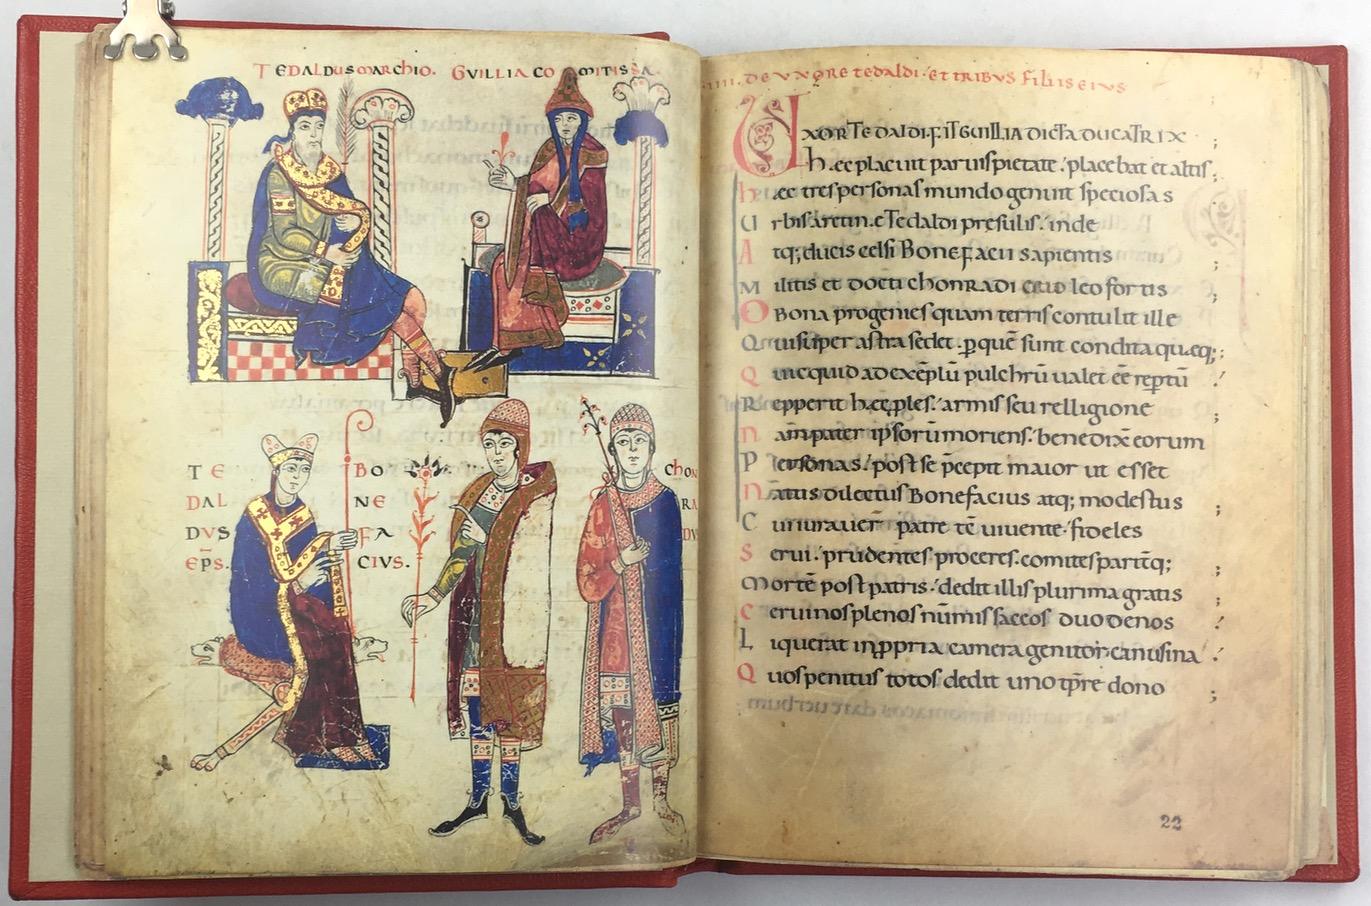 TEDALDUS MARCHIO. GUILLIA COMITISSA.
TE
DAL
DUS
EP̄S.
BO
NE
FA
CIUS.
CHON
RA
DV
IIII. DE VXORE TEDALDI. ET TRIBVS FILIIS EIVS
Uxor Tedaldi. fit Guillia dicta ducatrix ;
hec placuit paruis pietate. placebat et altis ;
hec tres personas mundo genuit speciosas
Urbis aretinę Tedaldi presulis. inde
Atq; ducis celsi Bonefacii sapientis ;
Militis et docti chonradi ceu leo fortis
O Bona progenies quam terris contulit ille
Qui super astra sedet. p quē sunt condita quęq; ;
Quicquid ad exēplū pulchrū ualet eē reptū
Repperit hęc ples. armis seu relligione ;
Nam pater ipsorū moriens. benedix eorum
Personas. post se p̄cepit maior ut esset
Natus dilectus Bonefacius atq; modestus ;
Cui iurauer patre tē uiuente fideles
Serui. prudentes proceres. comites paritq; ;
Mortē post patris. dedit illis plurima gratis
Ceruinos plenos nūmis saccos duodenos
Liquerat in ppria camera genitor canusina
Quos penitus totos dedit uno tp̄re dono ;
22